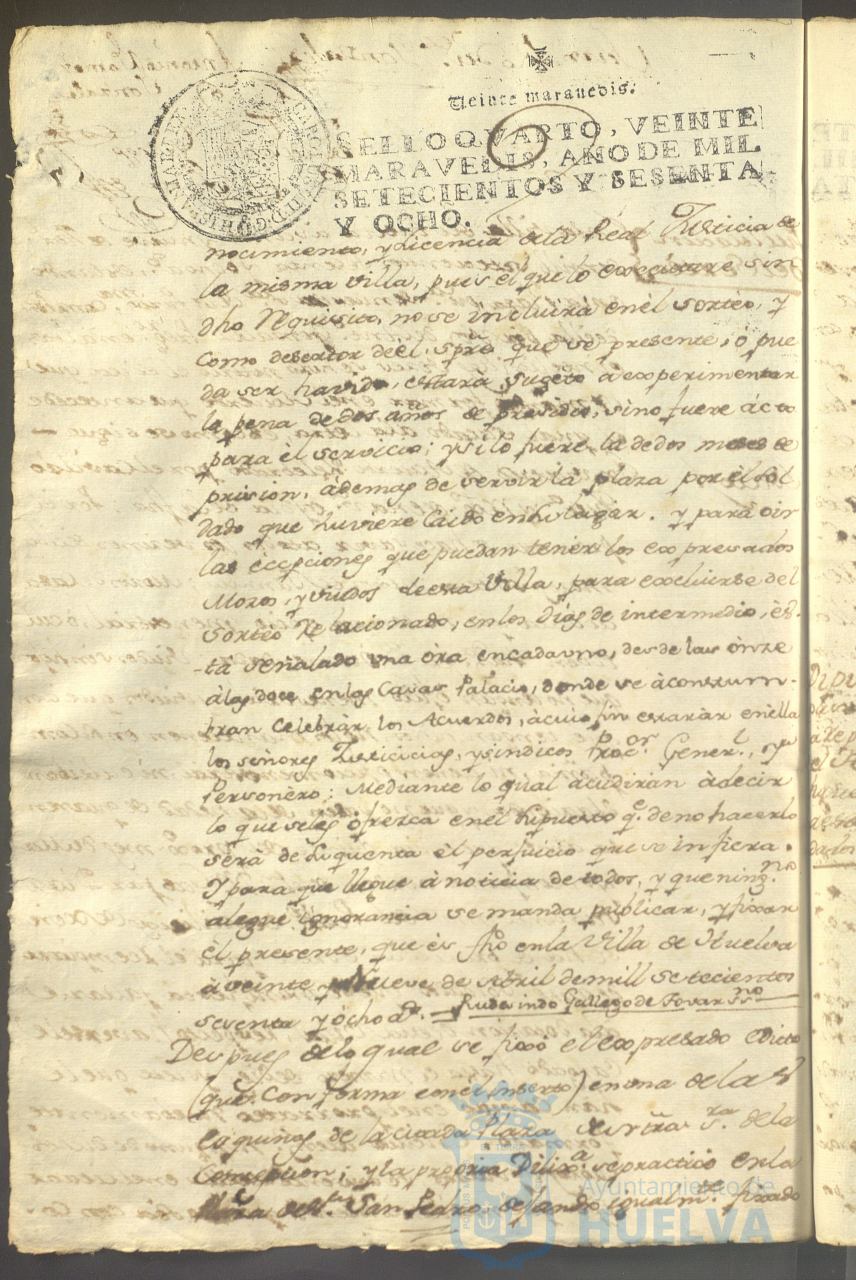 Veinte maravedis.
SELLO QVARTO, VEINTE
MARAVEDIS, AÑO DE MIL
SETECIENTOS Y SESENTA
Y OCHO.
nocimiento, y licencia de la Real Justicia de
la misma villa, pues el que lo executare sin
dho requisito, no se incluirá en el sorteo, y
como desertor de èl, spre que se presente, ó pue
da ser havido, estarà sugeto à experimentar
la pena de dos años de presidio, sino fuere ácto
para èl servicio; y si lo fuere la de dos meses de
prision, ademas de servir la plaza por èl sol
dado que huviere caido en su lugar. y para oir
las ècepciones que puedan tener los expresados
Mozos, y viudos de esta Villa, para excluirse del
Sorteo relacionado, en los Dias de intermedio, ès
tà señalado una òra en cada uno, desde las ònze
à las doce en las Casas Palacio, donde se àcostum-
bran celebrar los Acuerdos, àcuio fin estaràn en ella
los señores Justicias, y sindicos Procor. Generl., y
Personèro; Mediante lo qual àcudiràn àdecir
lo que seles òfrezca en èl supuesto q.e de no hacerlo
serà de su quenta èl perjuicio que se infiera.
Y para que llegue à noticia de todos, y que ning.no
alegue ignorancia se manda publicar, y fixar
el presente, que ès fho en la Villa de Huelva
à veinte y Nueve de Abril de mill setecientos
sesenta y òcho as. Rudesindo Gallego de Tovar ssno
Despues de lo qual se fixò el expresado edicto
(que conforma con el inserto) en una de las
esquinas de la citada Plaza de ntra Sra de la
Concepcion; y la propria Dilixa se practicò en la
de Sr. San Pedro, dejando igualm.te fixado
Ayuntamiento de
HUELVA